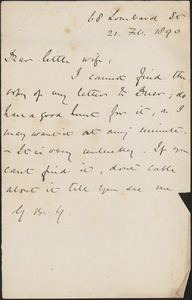 68 Lombard St
21. Feb. 1890
Dear little wife,
I cannot find the
copy of my letter to Dver; do
have a good hunt for it, as I
may want it at any minute.
- It is very unlucky. If you
cant find it, don't
about it till you see me